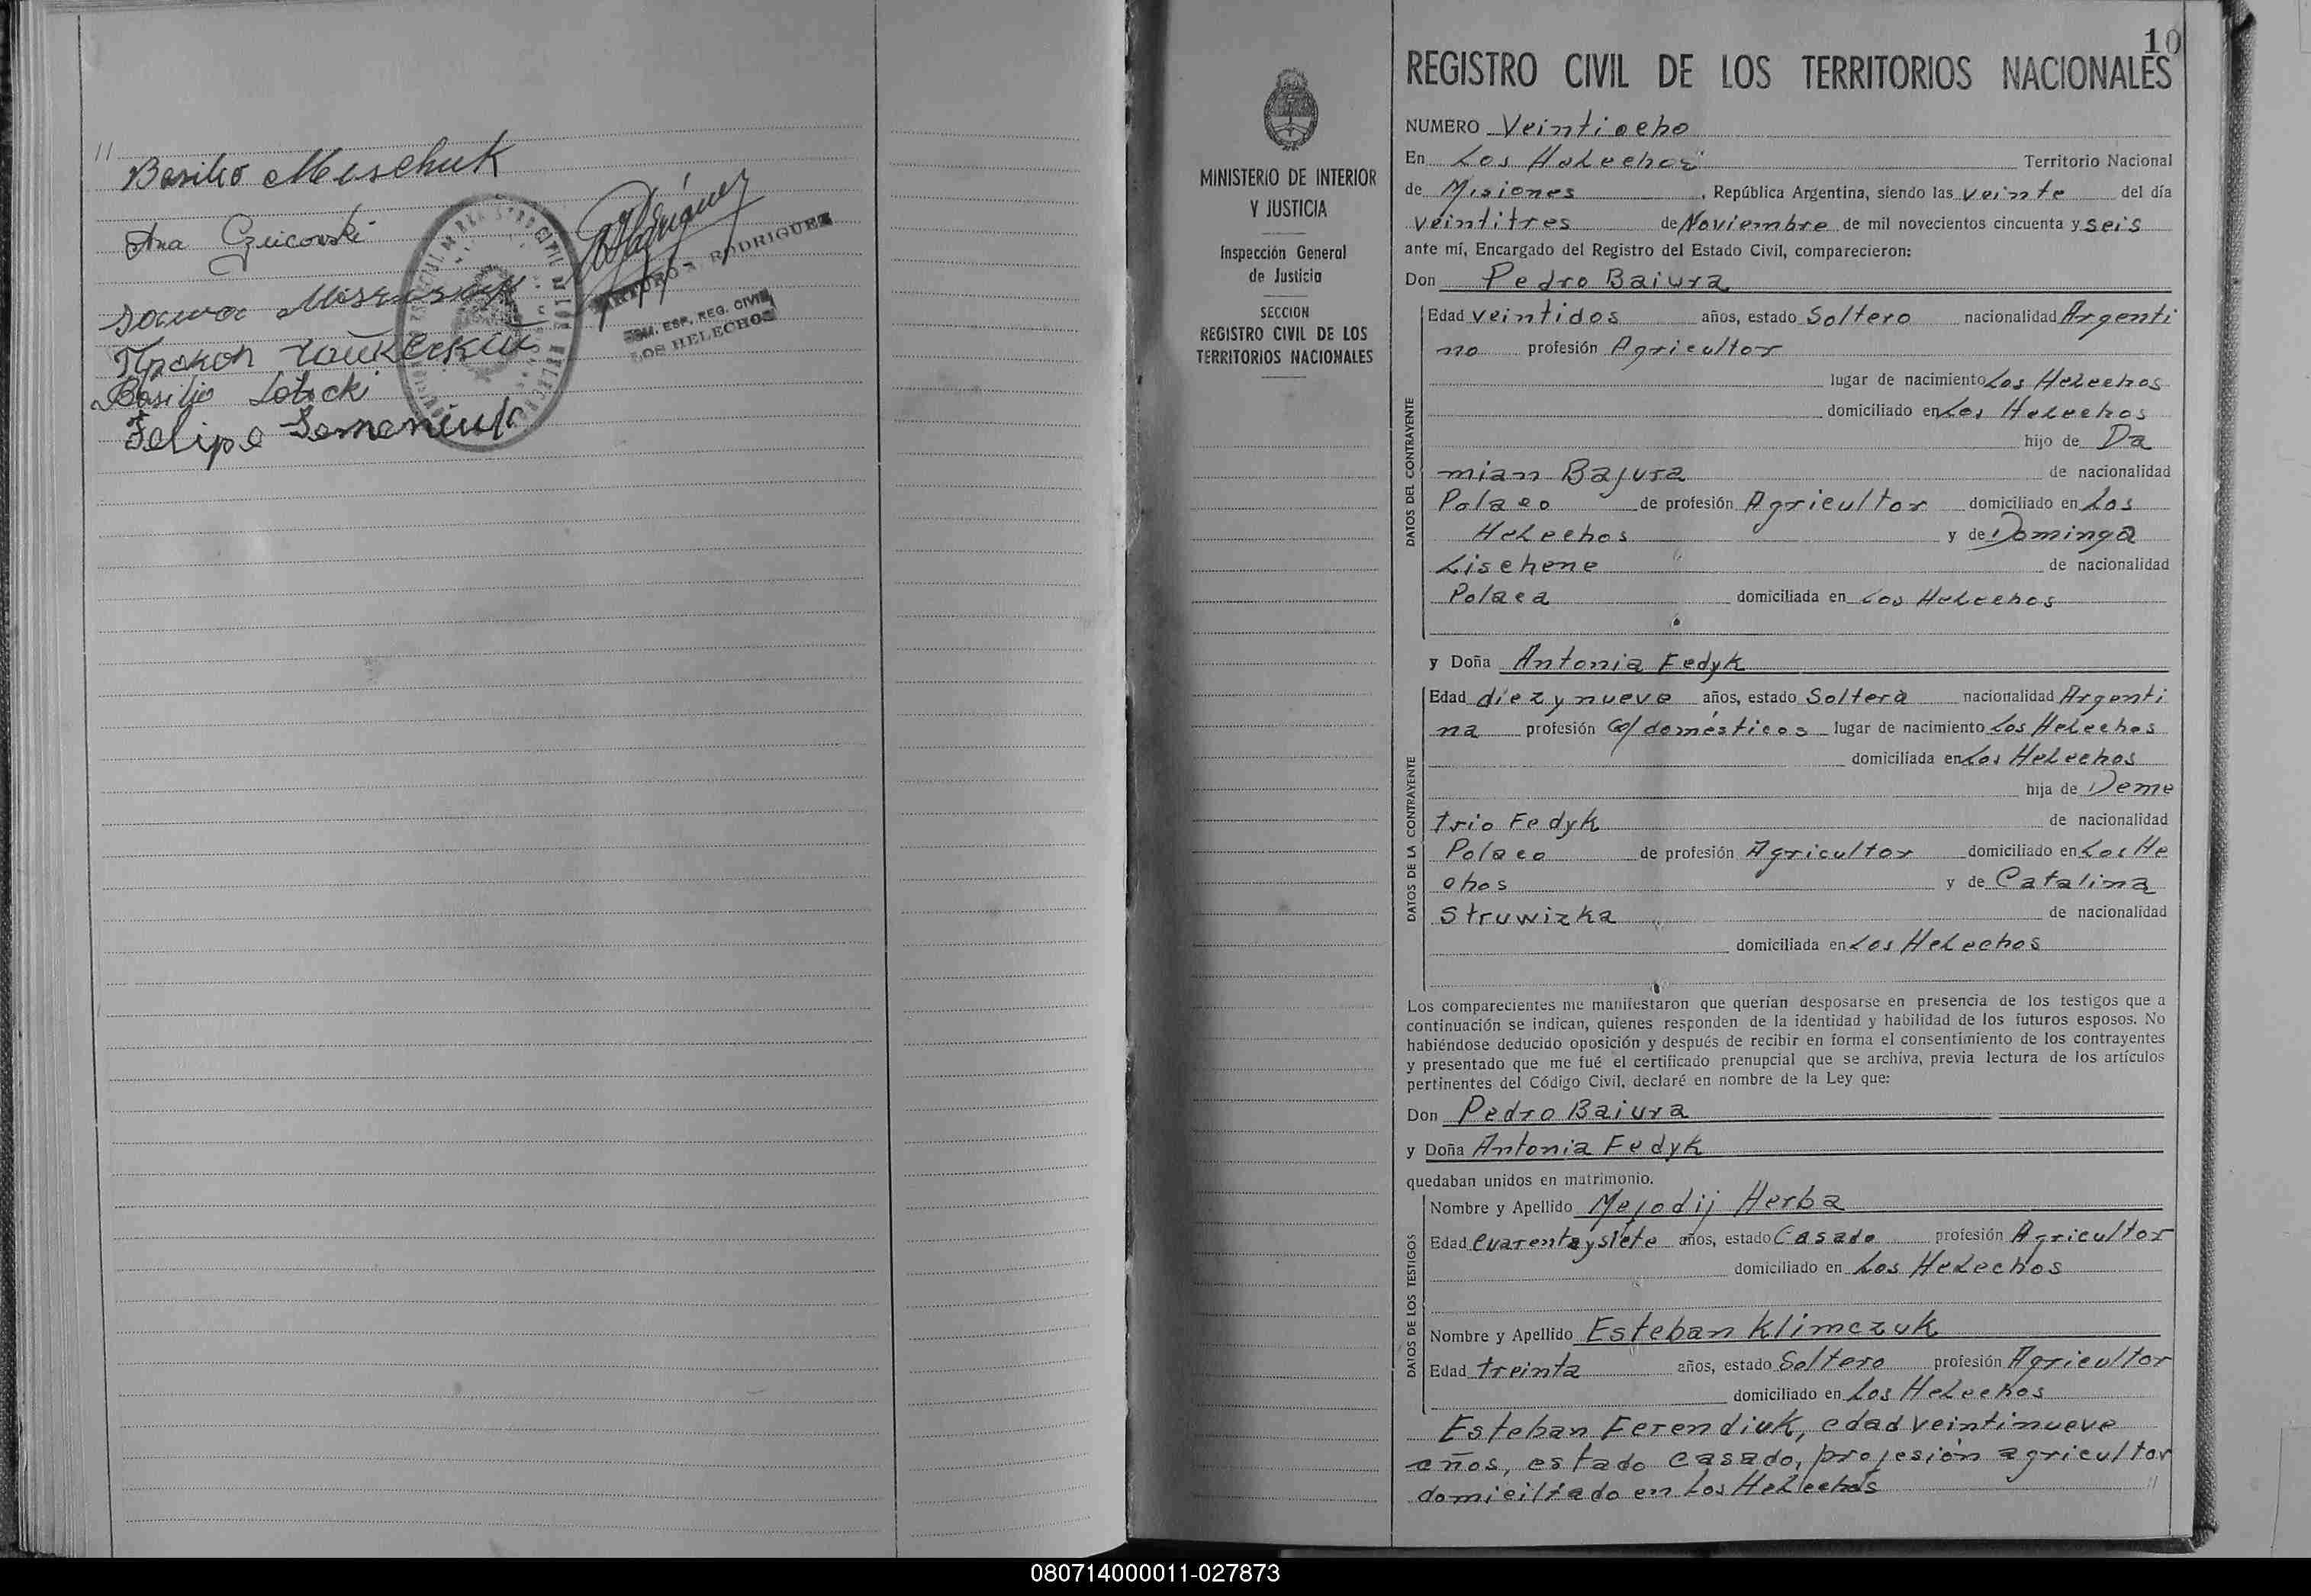 //
Basilio Meschuk
Ana
Прокоп
Basilio
Felipe Semeniuk
ARTURO A. RODRIGUEZ
REG. CIVIL
LOS HELECHOS
10
REGISTRO CIVIL DE LOS TERRITORIOS NACIONALES
MINISTERIO DE INTERIOR
Y JUSTICIA
Inspección General
de Justicia
SECCION
REGISTRO CIVIL DE LOS
TERRITORIOS NACIONALES
NUMERO Veintiocho
En Los Helechos Territorio Nacional
de Misiones, República Argentina, siendo las veinte del día
veintitres de Noviembre de mil novecientos cincuenta y seis
ante mí, Encargado del Registro del Estado Civil, comparecieron:
Don Pedro Baiura
DATOS DEL CONTRAYENTE
Edad veintidos años, estado Soltero nacionalidad Argenti
no profesión Agricultor
lugar de nacimiento Los Helechos
domiciliado en Los Helechos
hijo de Da
mian Bajura de nacionalidad
Polaco de profesión Agricultor domiciliado en Los
Helechos y de Dominga
Lischene de nacionalidad
Polaca domiciliada en Los Helechos
y Doña Antonia Fedyk
DATOS DE LA CONTRAYENTE
Edad diez y nueve años, estado Soltera nacionalidad Argenti
na profesión Q/domésticos lugar de nacimiento Los Helechos
domiciliada en Los Helechos
hija de Deme
trio Fedyk de nacionalidad
Polaco de profesión Agricultor domiciliado en Los He
chos y de Catalina
Struwizka de nacionalidad
domiciliada en Los Helechos
Los comparecientes me manifestaron que querían desposarse en presencia de los testigos que a
continuación se indican, quienes responden de la identidad y habilidad de los futuros esposos. No
habiéndose deducido oposición y después de recibir en forma el consentimiento de los contrayentes
y presentado que me fué el certificado prenupcial que se archiva, previa lectura de los artículos
pertinentes del Código Civil, declaré en nombre de la Ley que:
Don Pedro Baiura
y Doña Antonia Fedyk
quedaban unidos en matrimonio.
DATOS DE LOS TESTIGOS
Nombre y Apellido Mejodij Herba
Edad cuarenta y siete años, estado Casado profesión Agricultor
domiciliado en Los Helechos
Nombre y Apellido Esteban Klimczuk
Edad treinta años, estado Soltero profesión Agricultor
domiciliado en Los Helechos
Esteban Ferendiuk, edad veintinueve
años, estado casado, profesión agricultor
domiciliado en Los Helechos //
080714000011-027873